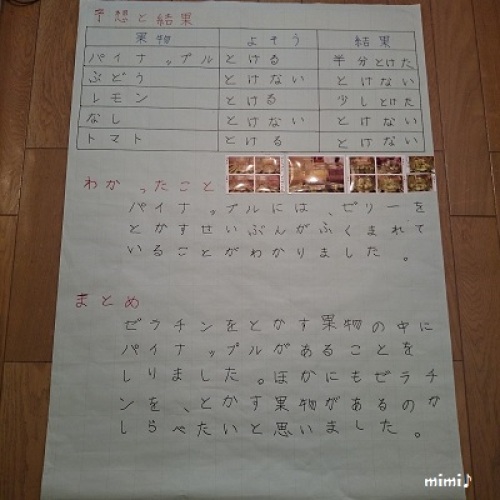 予想と結果
果物 よそう 結果
パイナップル とける 半分とけた
ぶどう とけない とけない
レモン とける 少しとけた
なし とけない とけない
トマト とける とけない
わかったこと
パイナップルには、ゼリーを
とかすせいぶんがふくまれて
いることがわかりました。
まとめ
ゼラチンをとかす果物の中に
パイナップルがあることを
しりました。ほかにもゼラチ
ンを、とかす果物があるのか
しらべたいと思いました。
mimi♪